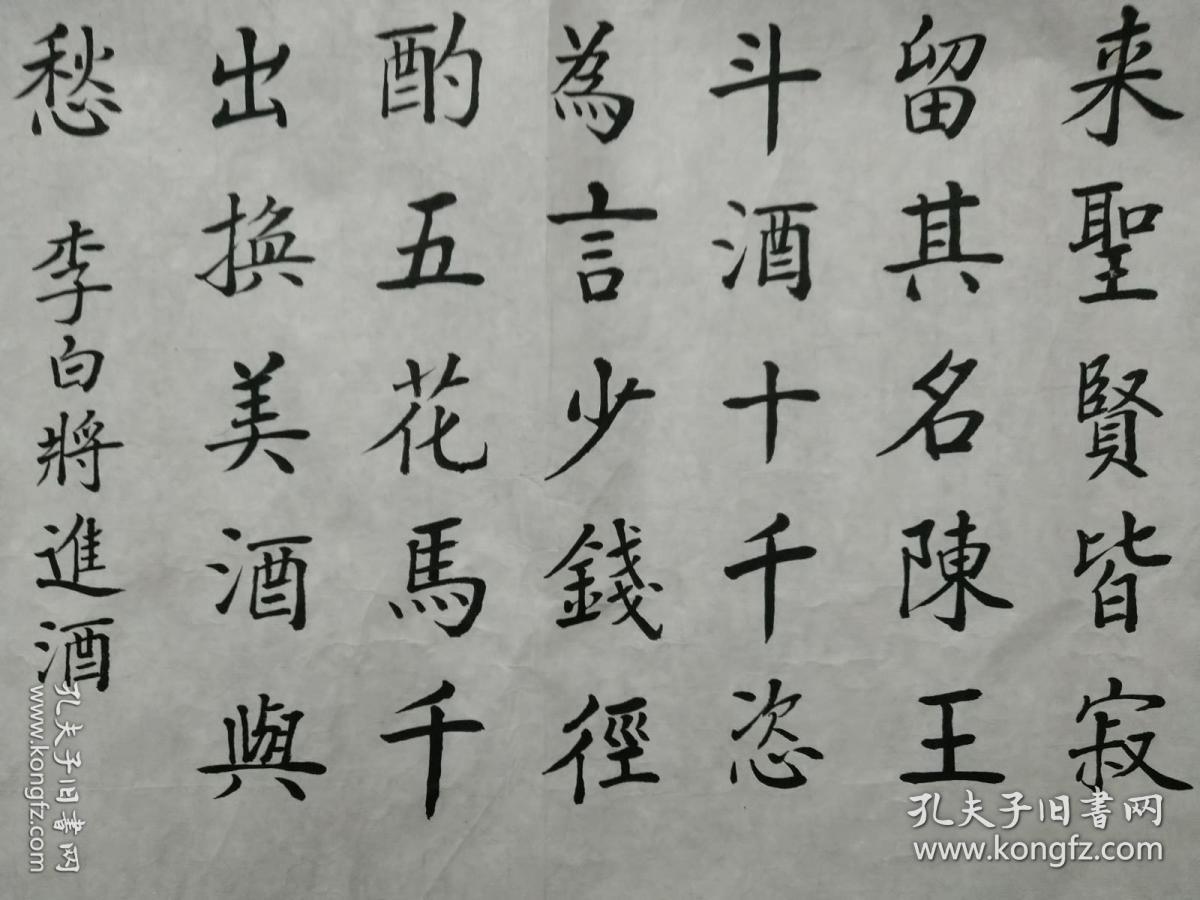 来聖賢皆寂
留其名陳王
斗酒十千恣
為言少錢徑
酌五花馬千
出換美酒與
愁 李白將進酒
孔夫子旧书网
www.kongfz.com
孔夫子旧书网
www.kongfz.com